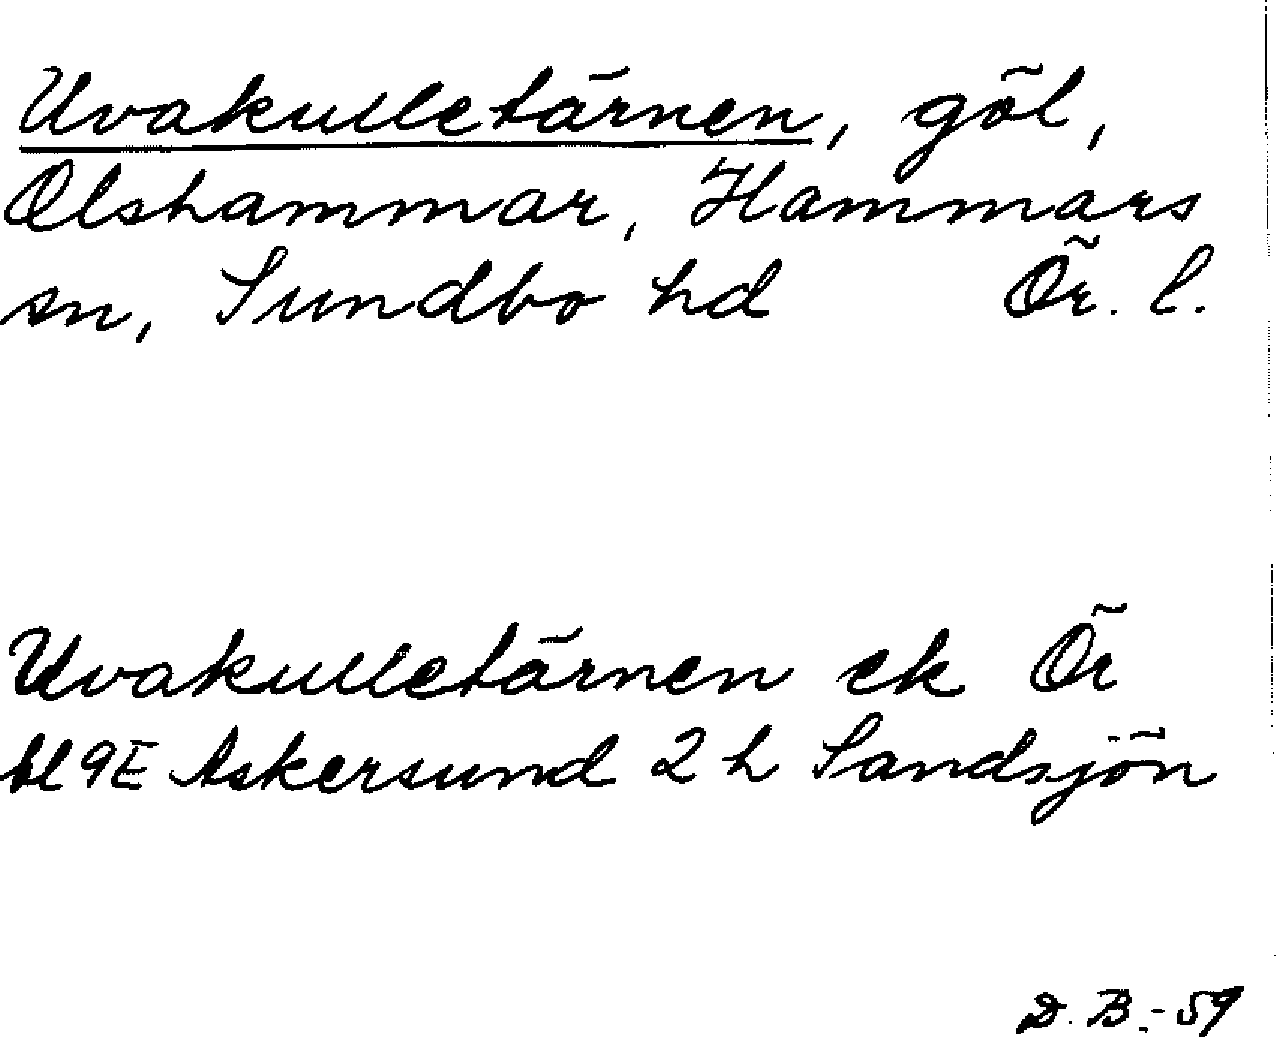 Uvakulletärnen, göl,
Olshammar, Hammars
sn, Sundbo hd Ör. l.
Uvakulletärnen ek Ör
bl 9E Askersund 2 h Sandsjön
D. B. - 59